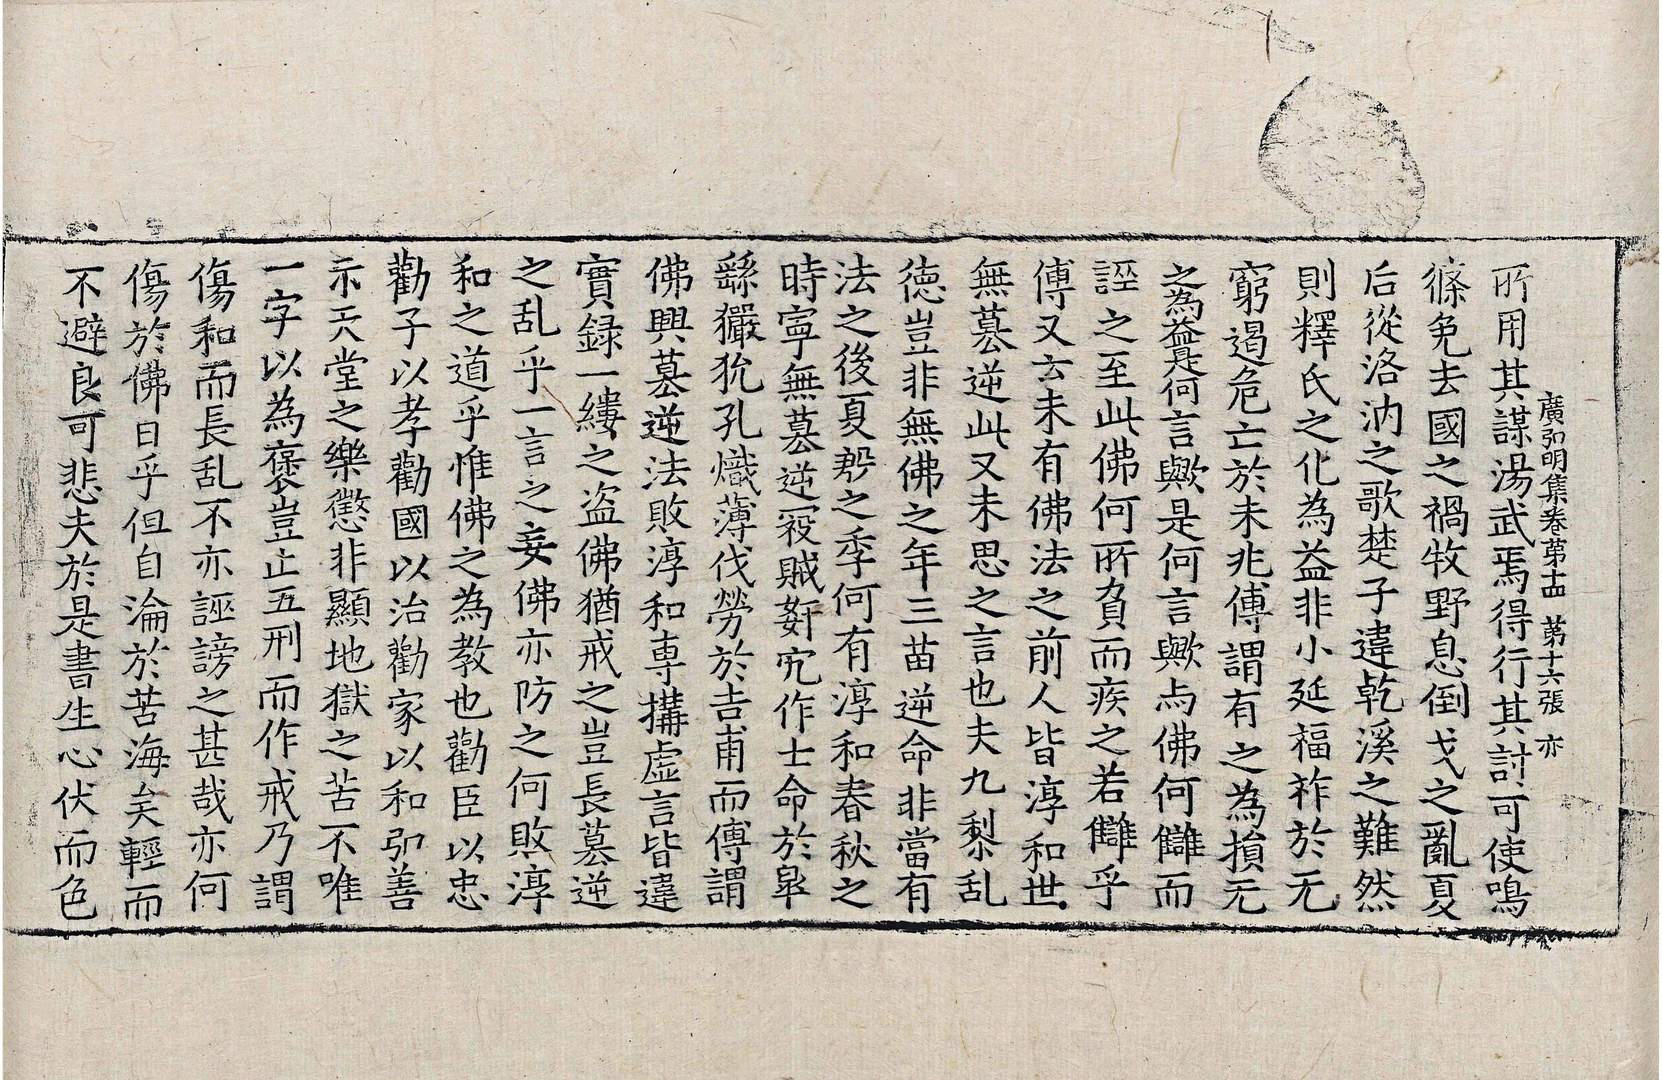 廣弘明集卷第十四 第十六張 亦
所用其謀湯武焉得行其討可使鳴
條免去國之禍牧野息倒戈之亂夏
后從洛汭之歌楚子違乾溪之難然
則釋氏之化為益非小延福祚於无
窮遏危亡於未兆傅謂有之為損无
之為益是何言歟是何言歟与佛何讎而
誣之至此佛何所負而疾之若讎乎
傅又云未有佛法之前人皆淳和世
無篡逆此又未思之言也夫九黎乱
德豈非無佛之年三苗逆命非當有
法之後夏殷之季何有淳和春秋之
時寧無篡逆寇賊姧宄作士命於皐
繇玁狁孔熾薄伐勞於吉甫而傅謂
佛興篡逆法敗淳和專搆虛言皆違
實録一縷之盗佛猶戒之豈長篡逆
之乱乎一言之妄佛亦防之何敗淳
和之道乎惟佛之為教也勸臣以忠
勸子以孝勸國以治勸家以和弘善
示天堂之樂懲非顯地獄之苦不唯
一字以為褒豈止五刑而作戒乃謂
傷和而長乱不亦誣謗之甚哉亦何
傷於佛日乎但自淪於苦海矣輕而
不避良可悲夫於是書生心伏而色